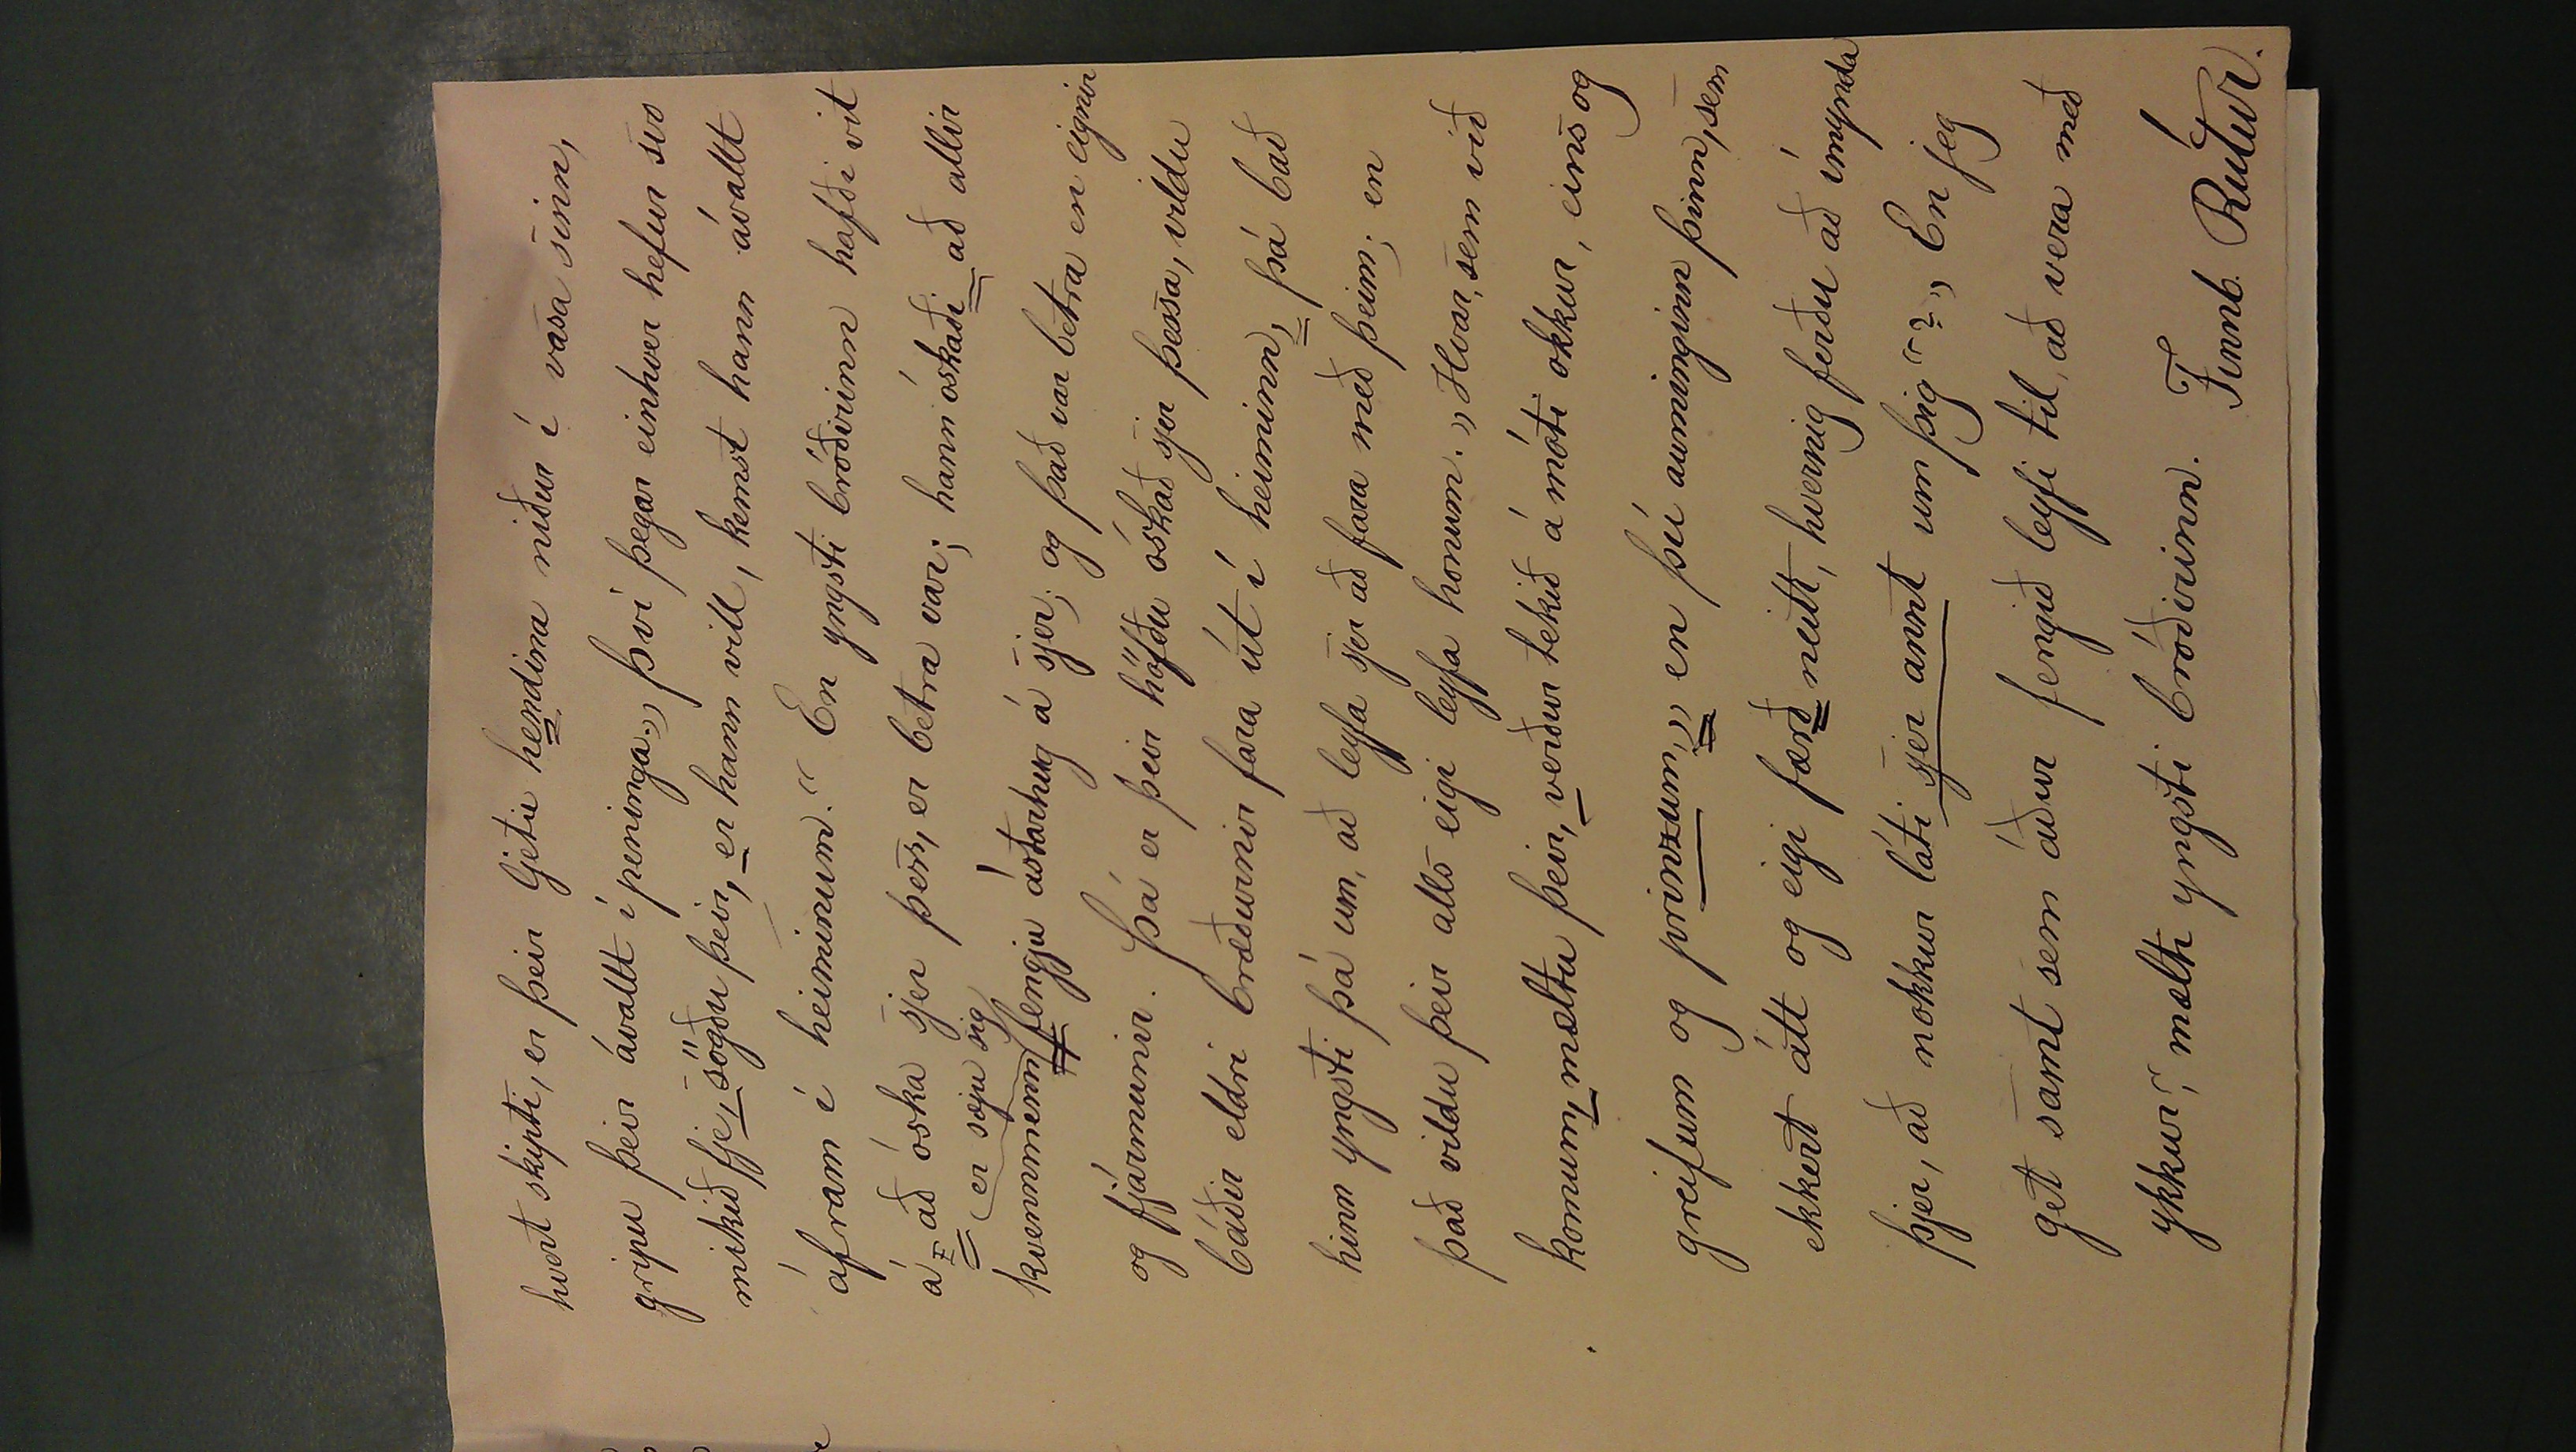 hvert skipti, er þeir ljetu hendina niður í vasa sinn,
gripu þeir ávallt í peninga. „því þegar einhver hefur svo
mikið fje, sögðu þeir, er hann vill, kemst hann ávallt
áfram í heiminum.“ En yngsti bróðirinn hafði vit
á að óska sjer þess, er betra var; hann óskaði að allir
er sæju sig
kvennmenn fengju ástarhug á sjer; og það var betra en eignir
og fjármunir. Þá er þeir höfðu óskað sjer þessa, vildu
báðir eldri bræðurnir fara út í heiminn, þá bað
hinn yngsti þá um, að leyfa sjer að fara með þeim; en
það vildu þeir alls eigi leyfa honum. „Hvar, sem við
komum, mæltu þeir, verður tekið á móti okkur, eins og
greifum og prinzum,“ en þú auminginn þinn, sem
ekkert átt og eigi færð neitt, hvernig ferðu að ímynda
þjer, að nokkur láti sjer annt um þig“? „En jeg
get samt sem áður fengið leyfi til, að vera með
ykkur“, mælti yngsti bróðirinn. Finnb. Rútur.